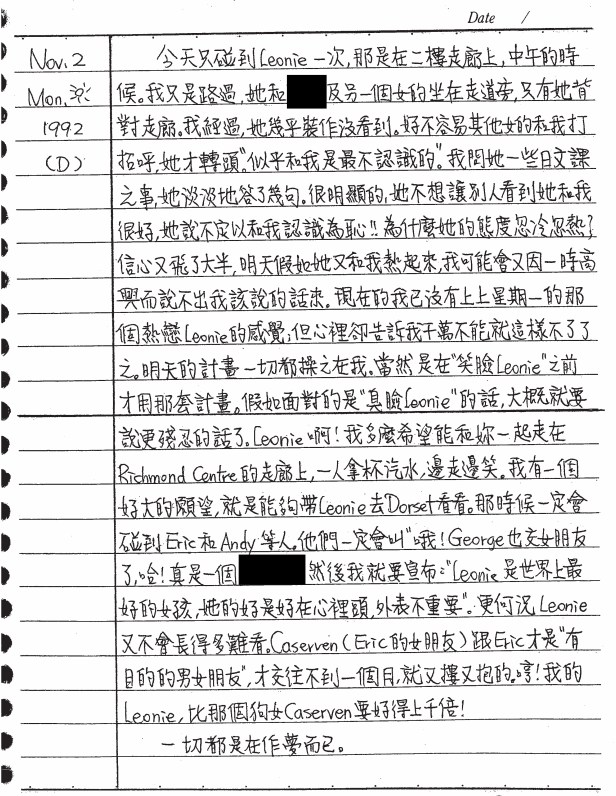 Date /
Nov. 2 今天只碰到Leonie一次,那是在二樓走廊上,中午的時
Mon. 候。我又是路過,她和 及另一個女的坐在走道旁,只有她背
1992 對走廊。我經過,她幾乎裝作沒看到。好不容易其他女的和我打
(D) 招呼,她才轉頭。"似乎和我是最不認識的"。我問她一些日文課
之事,她淡淡地答了幾句。很明顯的,她不想讓別人看到她和我
很好,她說不定以和我認識為恥!!為什麼她的態度忽冷忽熱?
信心又飛了大半,明天假如她又和我熱起來,我可能會又因一時高
興而說不出我該說的話來。現在的我已沒有上上星期一的那
個熱戀Leonie的感覺;但心裡卻告訴我千萬不能就這樣不了了
之。明天的計畫一切都操之在我。當然是在"笑臉Leonie"之前
才用那套計畫。假如面對的是"臭臉Leonie"的話,大概就要
說更殘忍的話了。Leonie啊!我多麼希望能和妳一起走在
Richmond Centre的走廊上,一人拿杯汽水,邊走邊笑。我有一個
好大的願望,就是能夠帶Leonie去Dorset看看。那時候一定會
碰到Eric和Andy等人。他們一定會叫"哦!George也交女朋友
了,哈!真是一個 然後我就要宣布:"Leonie是世界上最
好的女孩,她的好是好在心裡頭,外表不重要"。更何況,Leonie
又不會長得多難看。Caserven(Eric的女朋友)跟Eric才是"有
目的的男女朋友",才交往不到一個月,就又摟又抱的。哼!我的
Leonie,比那個狗女Caserven要好得上千倍!
一切都是在作夢而已。